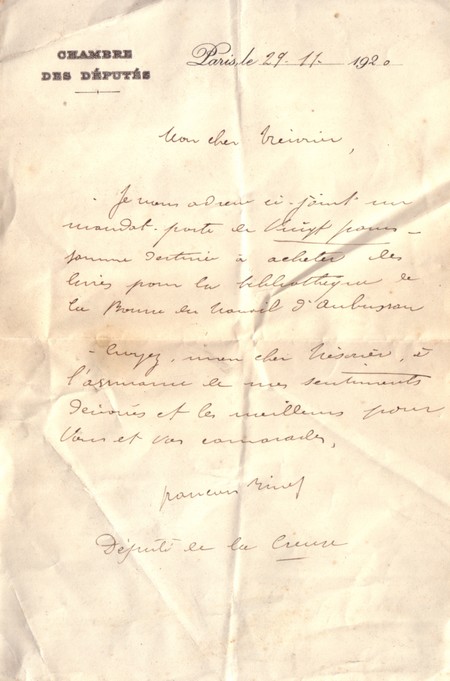 CHAMBRE
DES DÉPUTÉS
Paris, le 29-11-1920
Mon cher Trésorier,
Je vous adresse ci-joint un
mandat-poste de vingt francs -
somme destinée à acheter des
livres pour la bibliothèque de
la Bourse du Travail d'Aubusson
- Croyez, mon cher Trésorier, à
l'assurance de mes sentiments
dévoués et les meilleurs pour
vous et vos camarades.
François Binet
Député de la Creuse